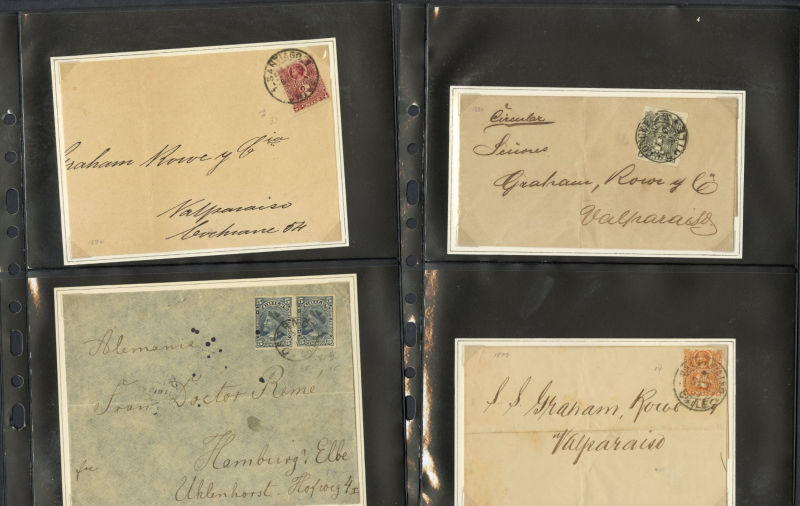 SANTIAGO
Graham Rowe y Cia
Valparaiso
Cochrane 04
Circular
Señores
Graham, Rowe y Ca
Valparaiso
Alemania
Frau Doctor Remé
Hamburg: Elbe
Uhlenhorst-Hofweg 4
S S Graham, Rowe
Valparaiso